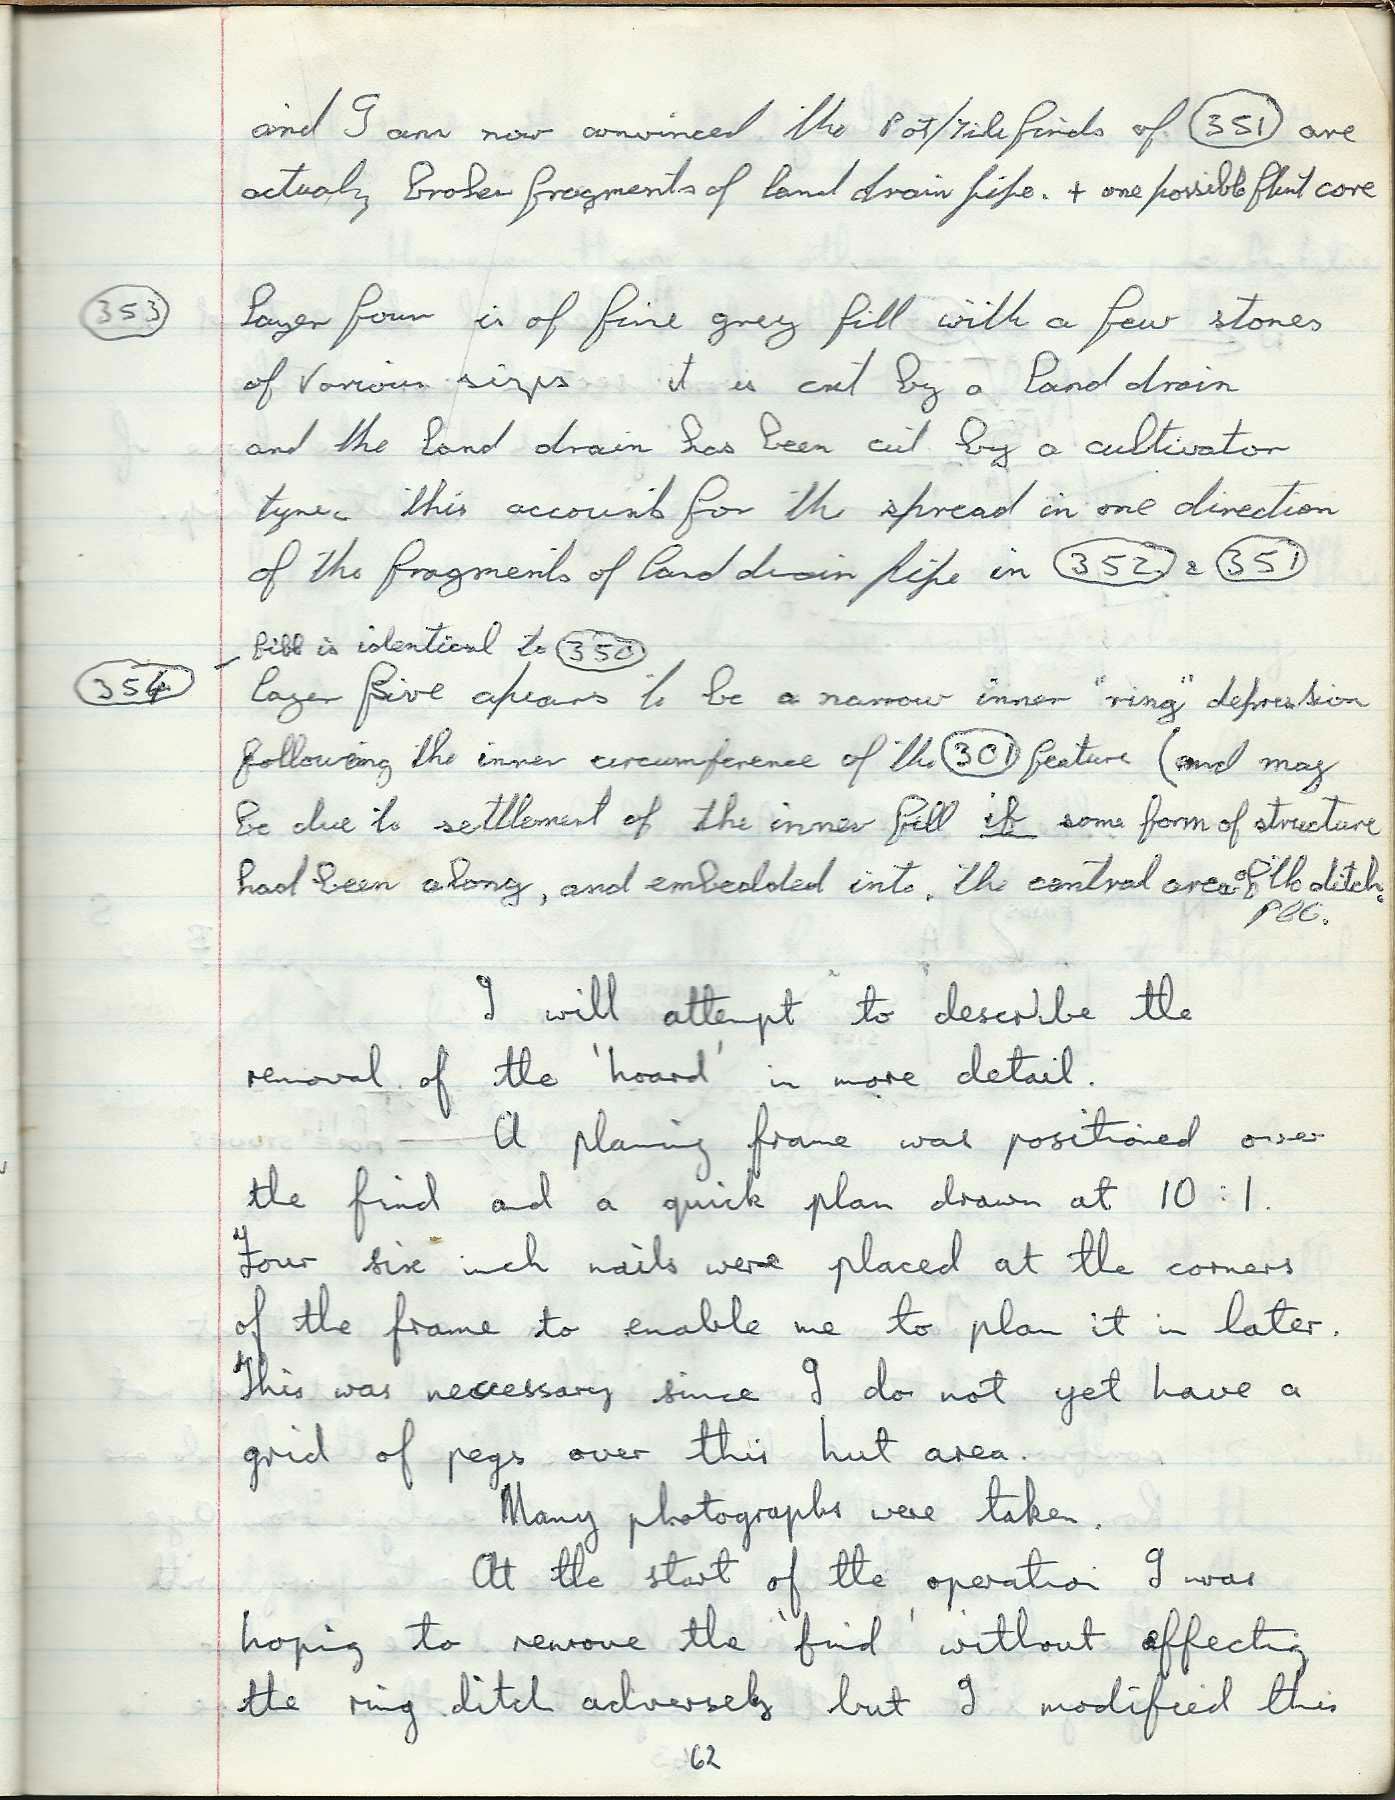 and I am now convinced the Pot/Tile finds of 351 are
actualy broken fragments of land drain pipe. + one possible flint core
353 layer four is of fine grey fill with a few stones
of various sizes it is cut by a land drain
and the land drain has been cut by a cultivator
tyne. this accounts for the spread in one direction
of the fragments of land drain pipe in 352 & 351
fill is identical to 350
354 layer five apears to be a narrow inner "ring" depression
following the inner circumference of the 301 feature (and may
be due to settlement of the inner fill if some form of structure
had been along, and embedded into, the central area of the ditch.
I will attempt to describe the
removal of the 'hoard' in more detail.
A planing frame was positioned over
the find and a quick plan drawn at 10:1.
Four six inch nails were placed at the corners
of the frame to enable me to plan it in later.
This was necessary since I do not yet have a
grid of pegs over this hut area.
Many photographs were taken.
At the start of the operation I was
hoping to remove the 'find' without affecting
the ring ditch adversely but I modified this
62